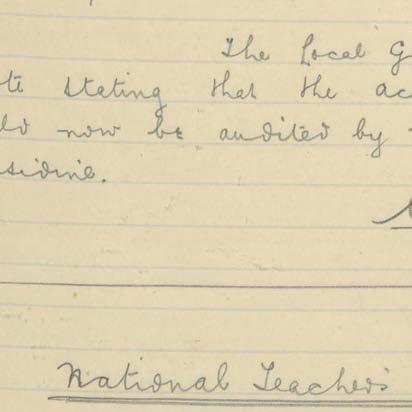 The Local G
te stating that the ac
ld now be audited by
sidine.
National Teachers